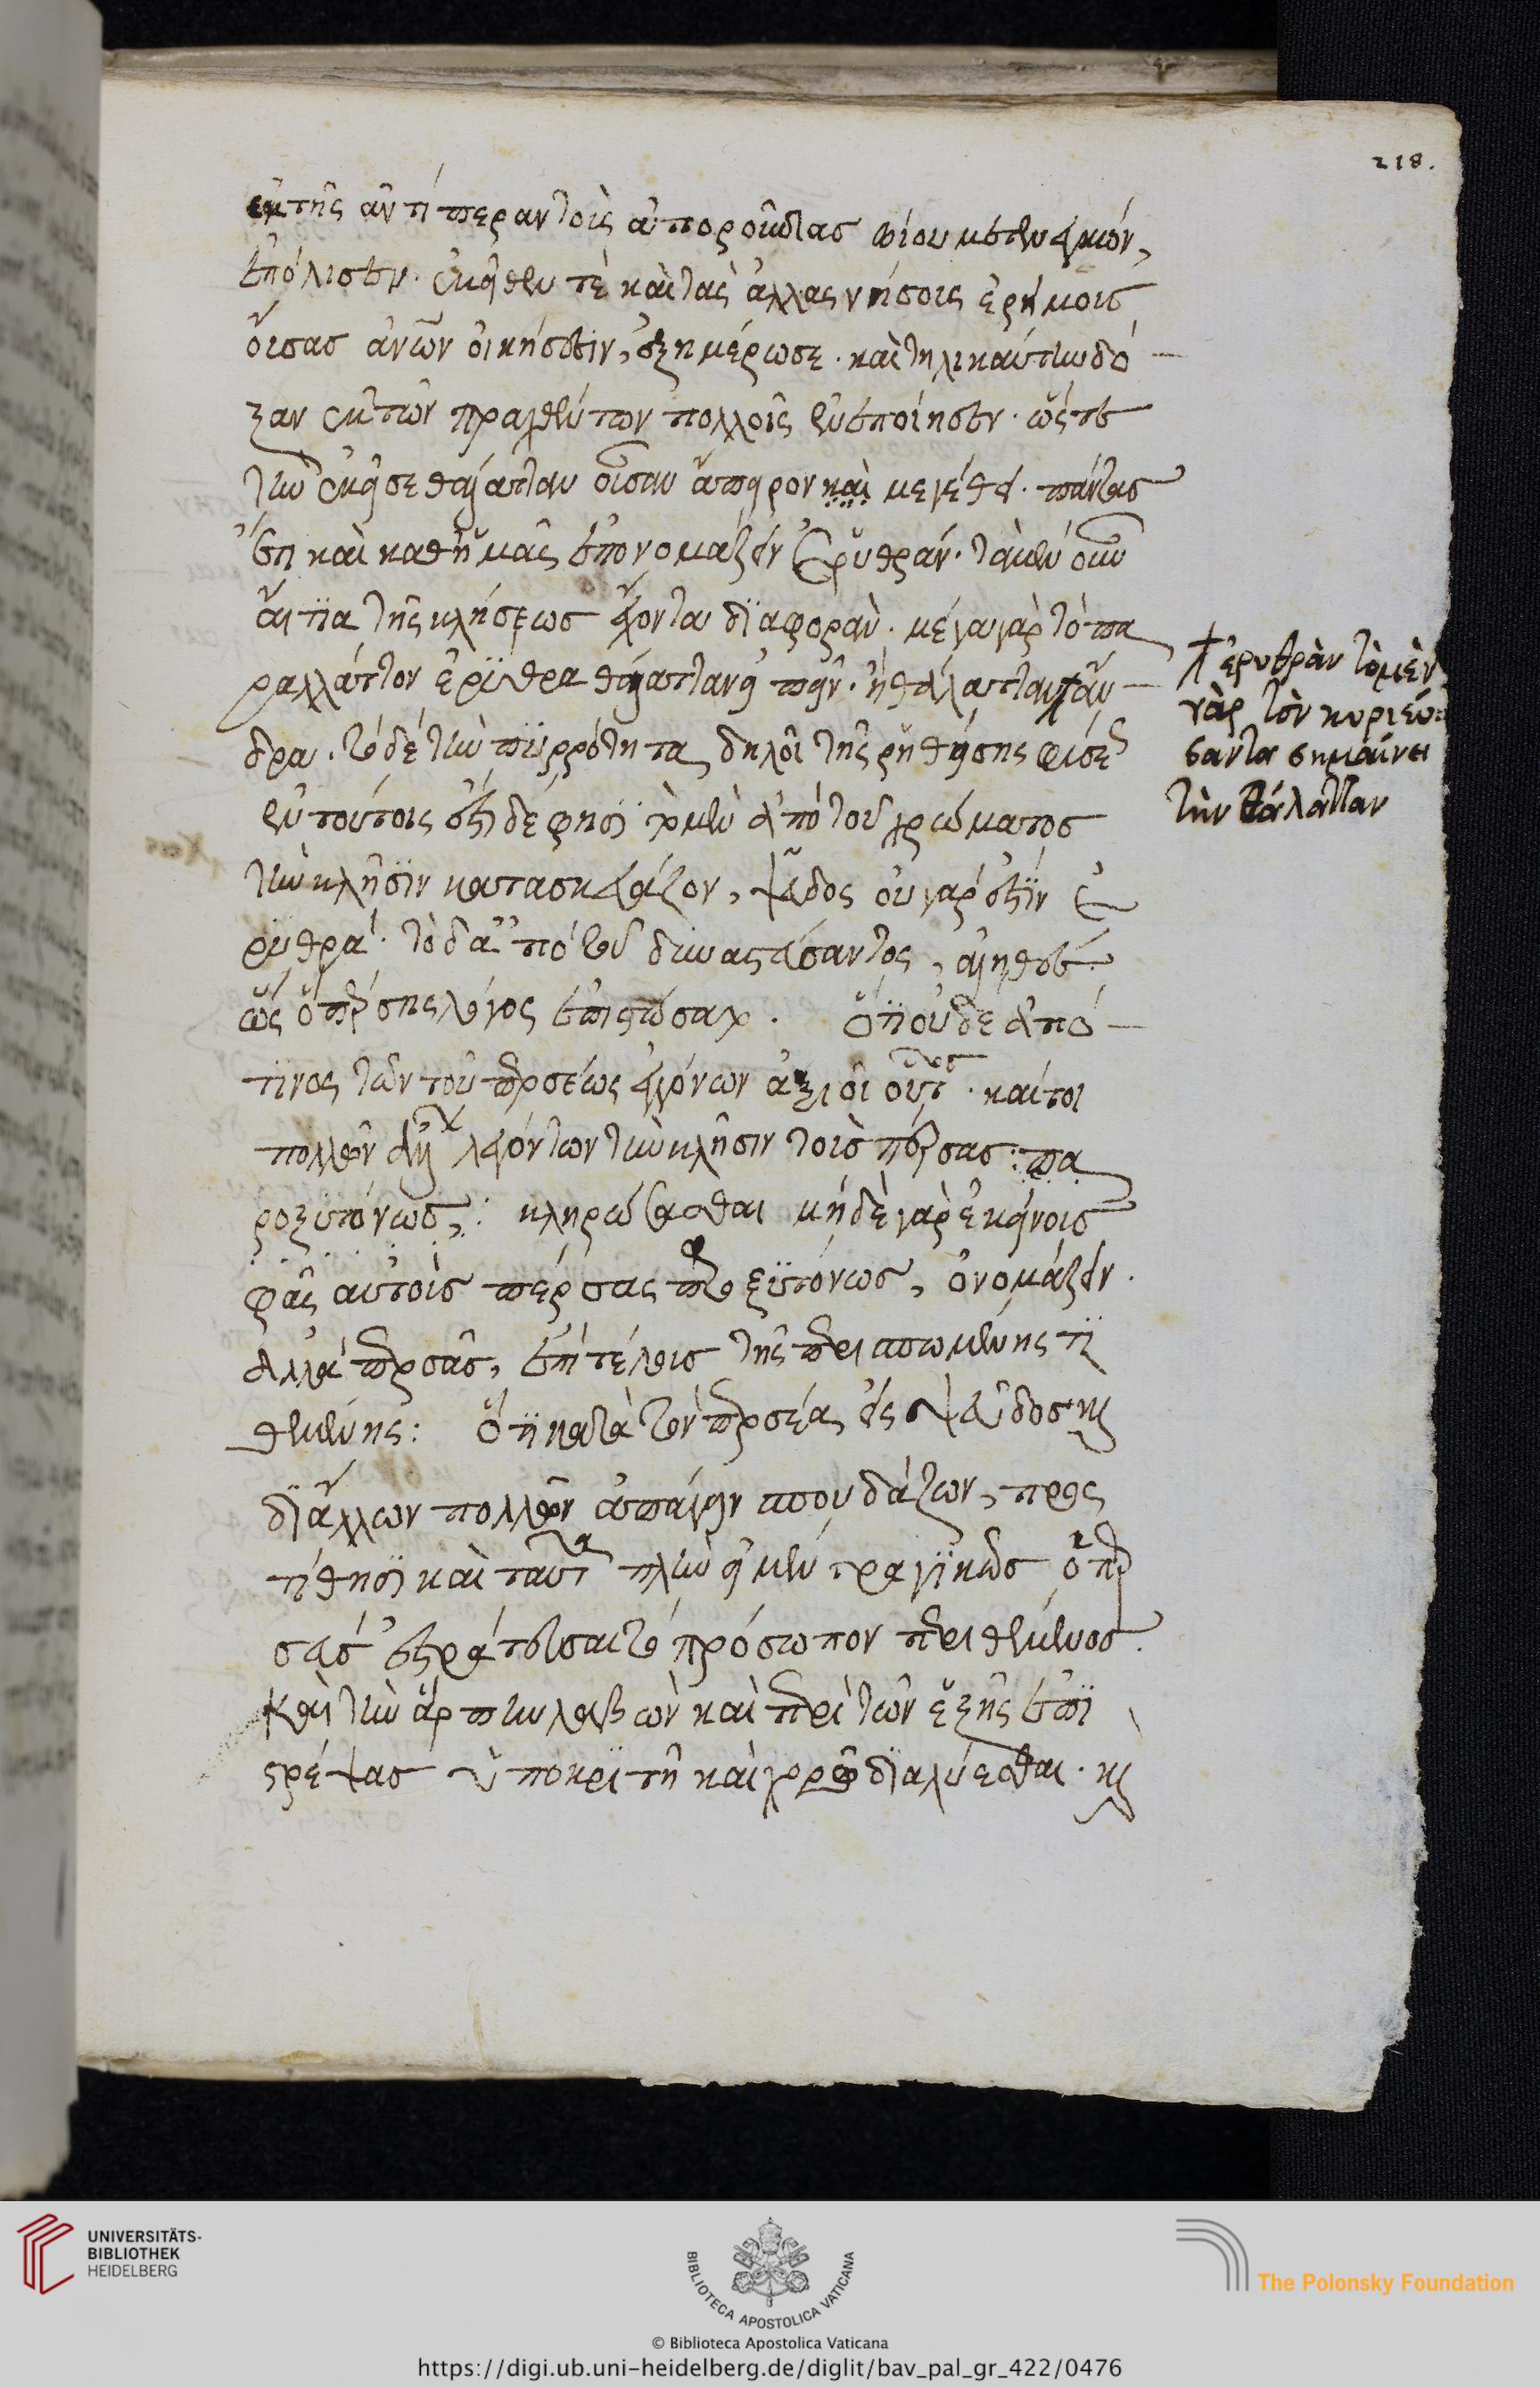 ἐκ τῆς ἀντιπέραν τοὺς ἀποροῦντας βίου μετενεγκών,
ἐπόλισεν. ἐκεῖθεν τὲ καὶ τὰς ἄλλας νήσους ἐρήμους
οὔσας ἀνων οἰκήσεσιν, ἐξημέρωσε. καὶ τηλικαύτην δό
ξαν ἐκ τῶν πραχθέντων πολλοῖς ἐνεποίησεν. ὥςτε
τὴν ἐκεῖσε θάλατταν οὖσαν ἄπειρον καὶ μεγέθει. πάντας
ἔτι καὶ καθ' ἡμᾶς ἐπονομάζειν Ἐρυθράν. τὰ μὲν οὖν
αἴτια τῆς κλήσεως ἔχοντα διαφοράν. μέγα γὰρ τὸ πα
ραλλάττον ἐρύθρα θάλατταν εἰπεῖν. ἢ θάλατταν ἄν
δρα. τὸ δὲ τὴν πυρρότητα δηλοῖ τῆς ῥηθείσης φύσε
ἐν τούτοις ἐστὶ δέ φησι τὸ μὲν ἀπὸ τοῦ χρώματος
τὴν κλῆσιν κατασκευάζον, ψεῦδος οὐ γάρ ἐστιν ἐ
ρυθρά. τὸ δ' ἀπὸ τοῦ δυναστεύσαντος, ἀληθές.
ὡς ὁ πέρσης λόγος ἐπιστώσατο. ὅτι οὐδὲ ἀπό
τινος τῶν τοῦ περσέως ἐγγόνων ἀξιοῖ οὗτος. καίτοι
πολλῶν ἀεὶ λεγόντων τὴν κλῆσιν τοὺς πέρσας: πα
ροξυτόνως: κληρώσασθαι μηδὲ γὰρ ἐκείνους
φᾶς αὐτοὺς πέρσας παροξυτόνως, ὀνομάζειν.
ἀλλὰ περσᾶς, ἐπὶ τέλους τῆς περισπωμένης τι
θεμένης: ὅτι κατὰ τὸν περσέα εἰς ψεῦδος κ
δι' ἄλλων πολλῶν ἀπάγειν σπουδάζων, προς
τίθησι καὶ ταῦτα πλὴν εἰ μὲν τραγικῶς ὁ περ
σεὺς ἐστρατεύσατο πρόσωπον περιθέμενος.
καὶ τὴν ἅρπην λαβὼν καὶ περὶ τῶν ἑξῆς ἐπι
τρέψας ὑποκριτῆ καὶ χορῷ διαλύεσθαι. κ
ἐρυθρὰν τὸ μὲν
γὰρ τὸν κυριεύ
σαντα σημαίνει
τὴν θάλατταν
218.
UNIVERSITÄTS-
BIBLIOTHEK
HEIDELBERG
BIBLIOTECA APOSTOLICA VATICANA
The Polonsky Foundation
© Biblioteca Apostolica Vaticana
https://digi.ub.uni-heidelberg.de/diglit/bav_pal_gr_422/0476